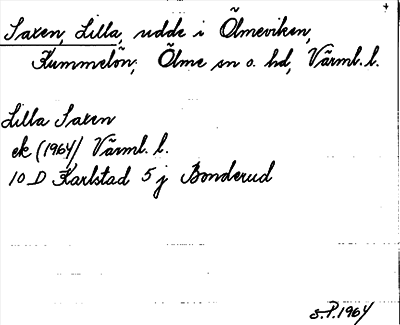 Saxen, Lilla, udde i Ölmeviken,
Kummelön; Ölme sn o. hd, Värml. l.
Lilla Saxen
ek (1964) Värml. l.
10 D Karlstad 5 j Bonderud
S.P. 1964